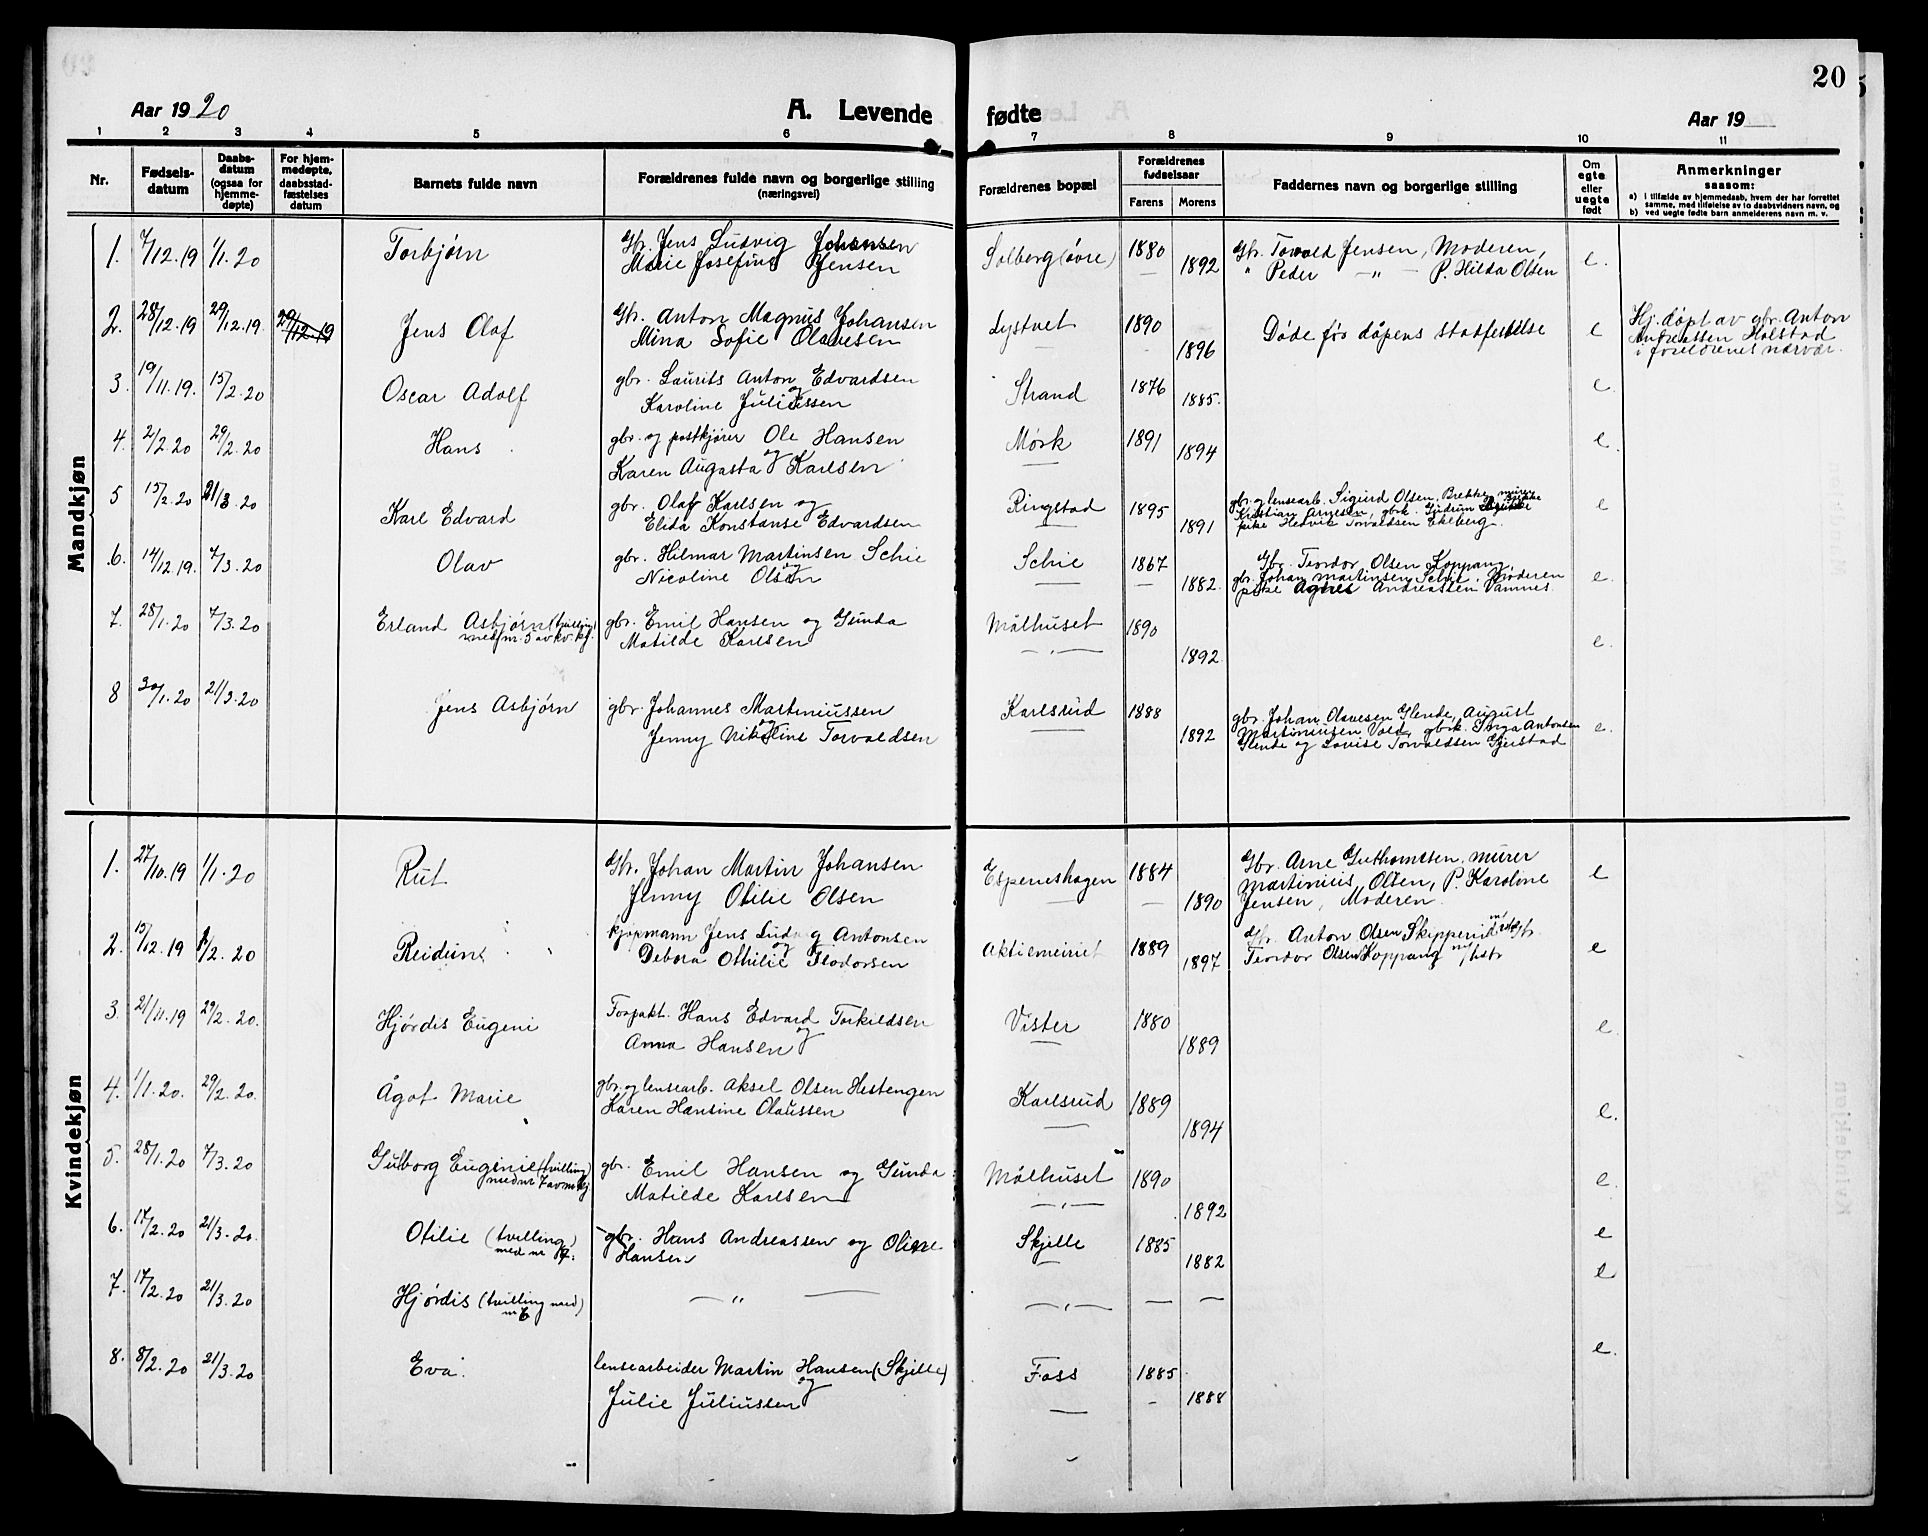 20
Aar 1920 A. Levende fødte Aar 19
1 2 3 4 5 6 7 8 9 10 11
Nr. Fødsels-datum Daabs-datum (ogsaa for hjemme-døpte) For hjem-medøpte, daabsstad-fæstelses datum Barnets fulde navn Forældrenes fulde navn og borgerlige stilling (næringsvei) Forældrenes bopæl Forældrenes fødselsaar Farens Morens Faddernes navn og borgerlige stilling Om egte eller uegte født Anmerkninger saasom: a) i tilfælde av hjemmedaab, hvem der har forrettet samme, med tilføielse av to daabsvidners navn, og b) ved uegte fødte barn anmelderens navn m. v.
Mandkjøn
1. 7/12.19 1/1.20 Torbjørn Gbr. Jens Ludvig Johansen Solberg (øvre) 1880 Gbr. Torvald Jensen, Moderen, e.
Marie Josefine Jensen — 1892 " Peder —"— P. Hilda Olsen
2. 28/12.19 29/12.19. 29/12.19 Jens Olaf Gbr. Anton Magnus Johansen Lystvet 1890 Døde før dåpens stadfestelse e Hj. døpt av gbr. Anton
Mina Sofie Olavesen 1896 Andreassen Holstad
i foreldrenes nærvær.
3. 19/11.19. 15/2.20 Oscar Adolf gbr. Laurits Anton Edvardsen Strand 1876 e
og
Karoline Juliussen 1885.
4. 2/2.20 29/2.20 Hans gbr. og postkjører Ole Hansen Mørk 1891 e.
og
Karen Augusta Karlsen 1894
5 15/2.20 21/3.20 Karl Edvard gbr. Olaf Karlsen og Ringstad 1895 gbr. og lensearb. Sigurd Olsen, Brekke, murer e
Elida Konstanse Edvardsen 1891 Kristian Arnesen, gbrk. Gudrun Brekke
pike Hedvik Torvaldsen Ekeberg.
6. 14/12.19. 7/3.20 Olav gbr. Hilmar Martinsen Schie Schie 1867 Gbr. Teodor Olsen Koppang, e.
og
Nicoline Olsen — 1882. gbr. Johan Martinsen Schie. Moderen
pike Agnes Andreassen Vamnes.
7. 28/1.20 7/3.20 Erland Asbjørn (tvilling gbr. Emil Hansen og Gunda Mölhuset 1890 e.
med nr. 5 av kv.kj.) Matilde Karlsen —"— 1892
8 30/1.20 21/3.20 Jens Asbjørn gbr. Johannes Martiniussen Karlsrud 1888 gbr. Johan Olavesen Glende, August e.
og
Jenny Nikoline Torvaldsen 1892 Martiniusen Vold, gbrk. Borga Antonsen
Glende og Lovise Torvaldsen Gjerstad
Kvindekjøn
1. 27/10.19 1/1.20 Rut Gbr. Johan Martin Johansen Espeneshagen 1884 Gbr. Arne Guthomssen, murer e
Jenny Otilie Olsen — 1890 Martinius Olsen, P. Karoline
Jensen, Moderen.
2. 15/12.19 1/2.20 Reidun kjøpmann Jens Ludvig Antonsen Aktiemeiriet 1889 Gbr. Anton Olsen Skipperud m/ hstr. e
og
Debora Othilie Teodorsen 1897 Teordor Olsen Koppang m/hstr
3. 21/11.19 29/2.20. Hjørdis Eugeni Forpakt. Hans Edvard Torkildsen Vister 1880 e.
og
Anna Hansen 1889
4. 1/1.20. 29/2.20. Ågot Marie gbr. og lensearb. Aksel Olsen Hestengen Karlsrud 1889 e.
Karen Hansine Olaussen 1894
5. 28/1.20 7/3.20 Gulborg Euginie (tvilling gbr. Emil Hansen og Gunda Mölhuset 1890 e.
med nr 7 av m.kj.) Matilde Karlsen —"— 1892
6. 17/2.20 21/3.20. Otilie (tvilling gbr. Hans Andreassen og Oline Skjelle 1885 e
med nr 7. Hansen 1882
7. 17/2.20 21/3.20 Hjørdis (tvilling med —"— —"— — — e
nr 6
8. 8/2.20 21/3.20 Eva. lensearbeider Martin Hansen (Skjelle) Foss 1885 e.
og
Julie Juliussen — 1888